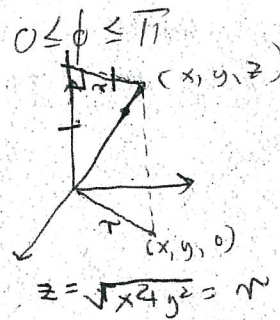 0 ≤ ϕ ≤ π
r
(x, y, z)
r
(x, y, 0)
z = √x²+y² = r